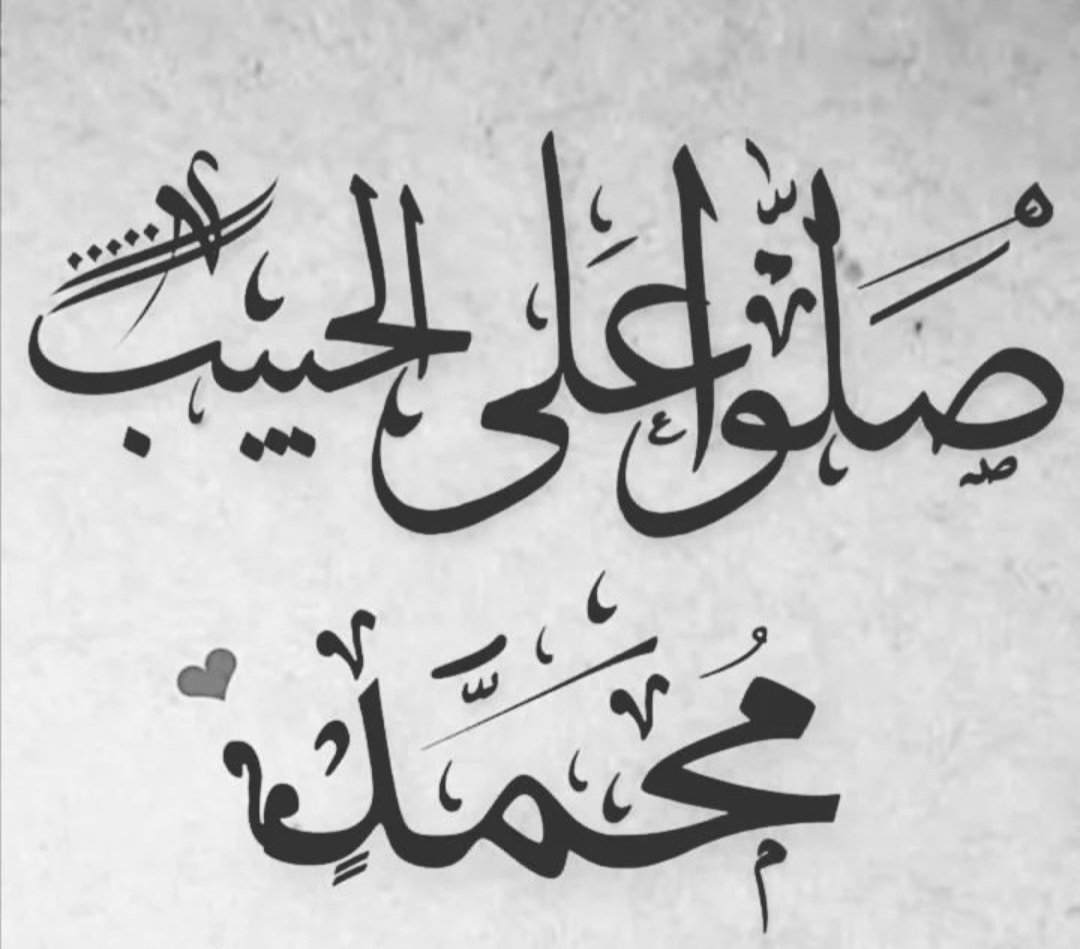 صَلُّوا عَلَى الحبيب
مُحمَّدٍ